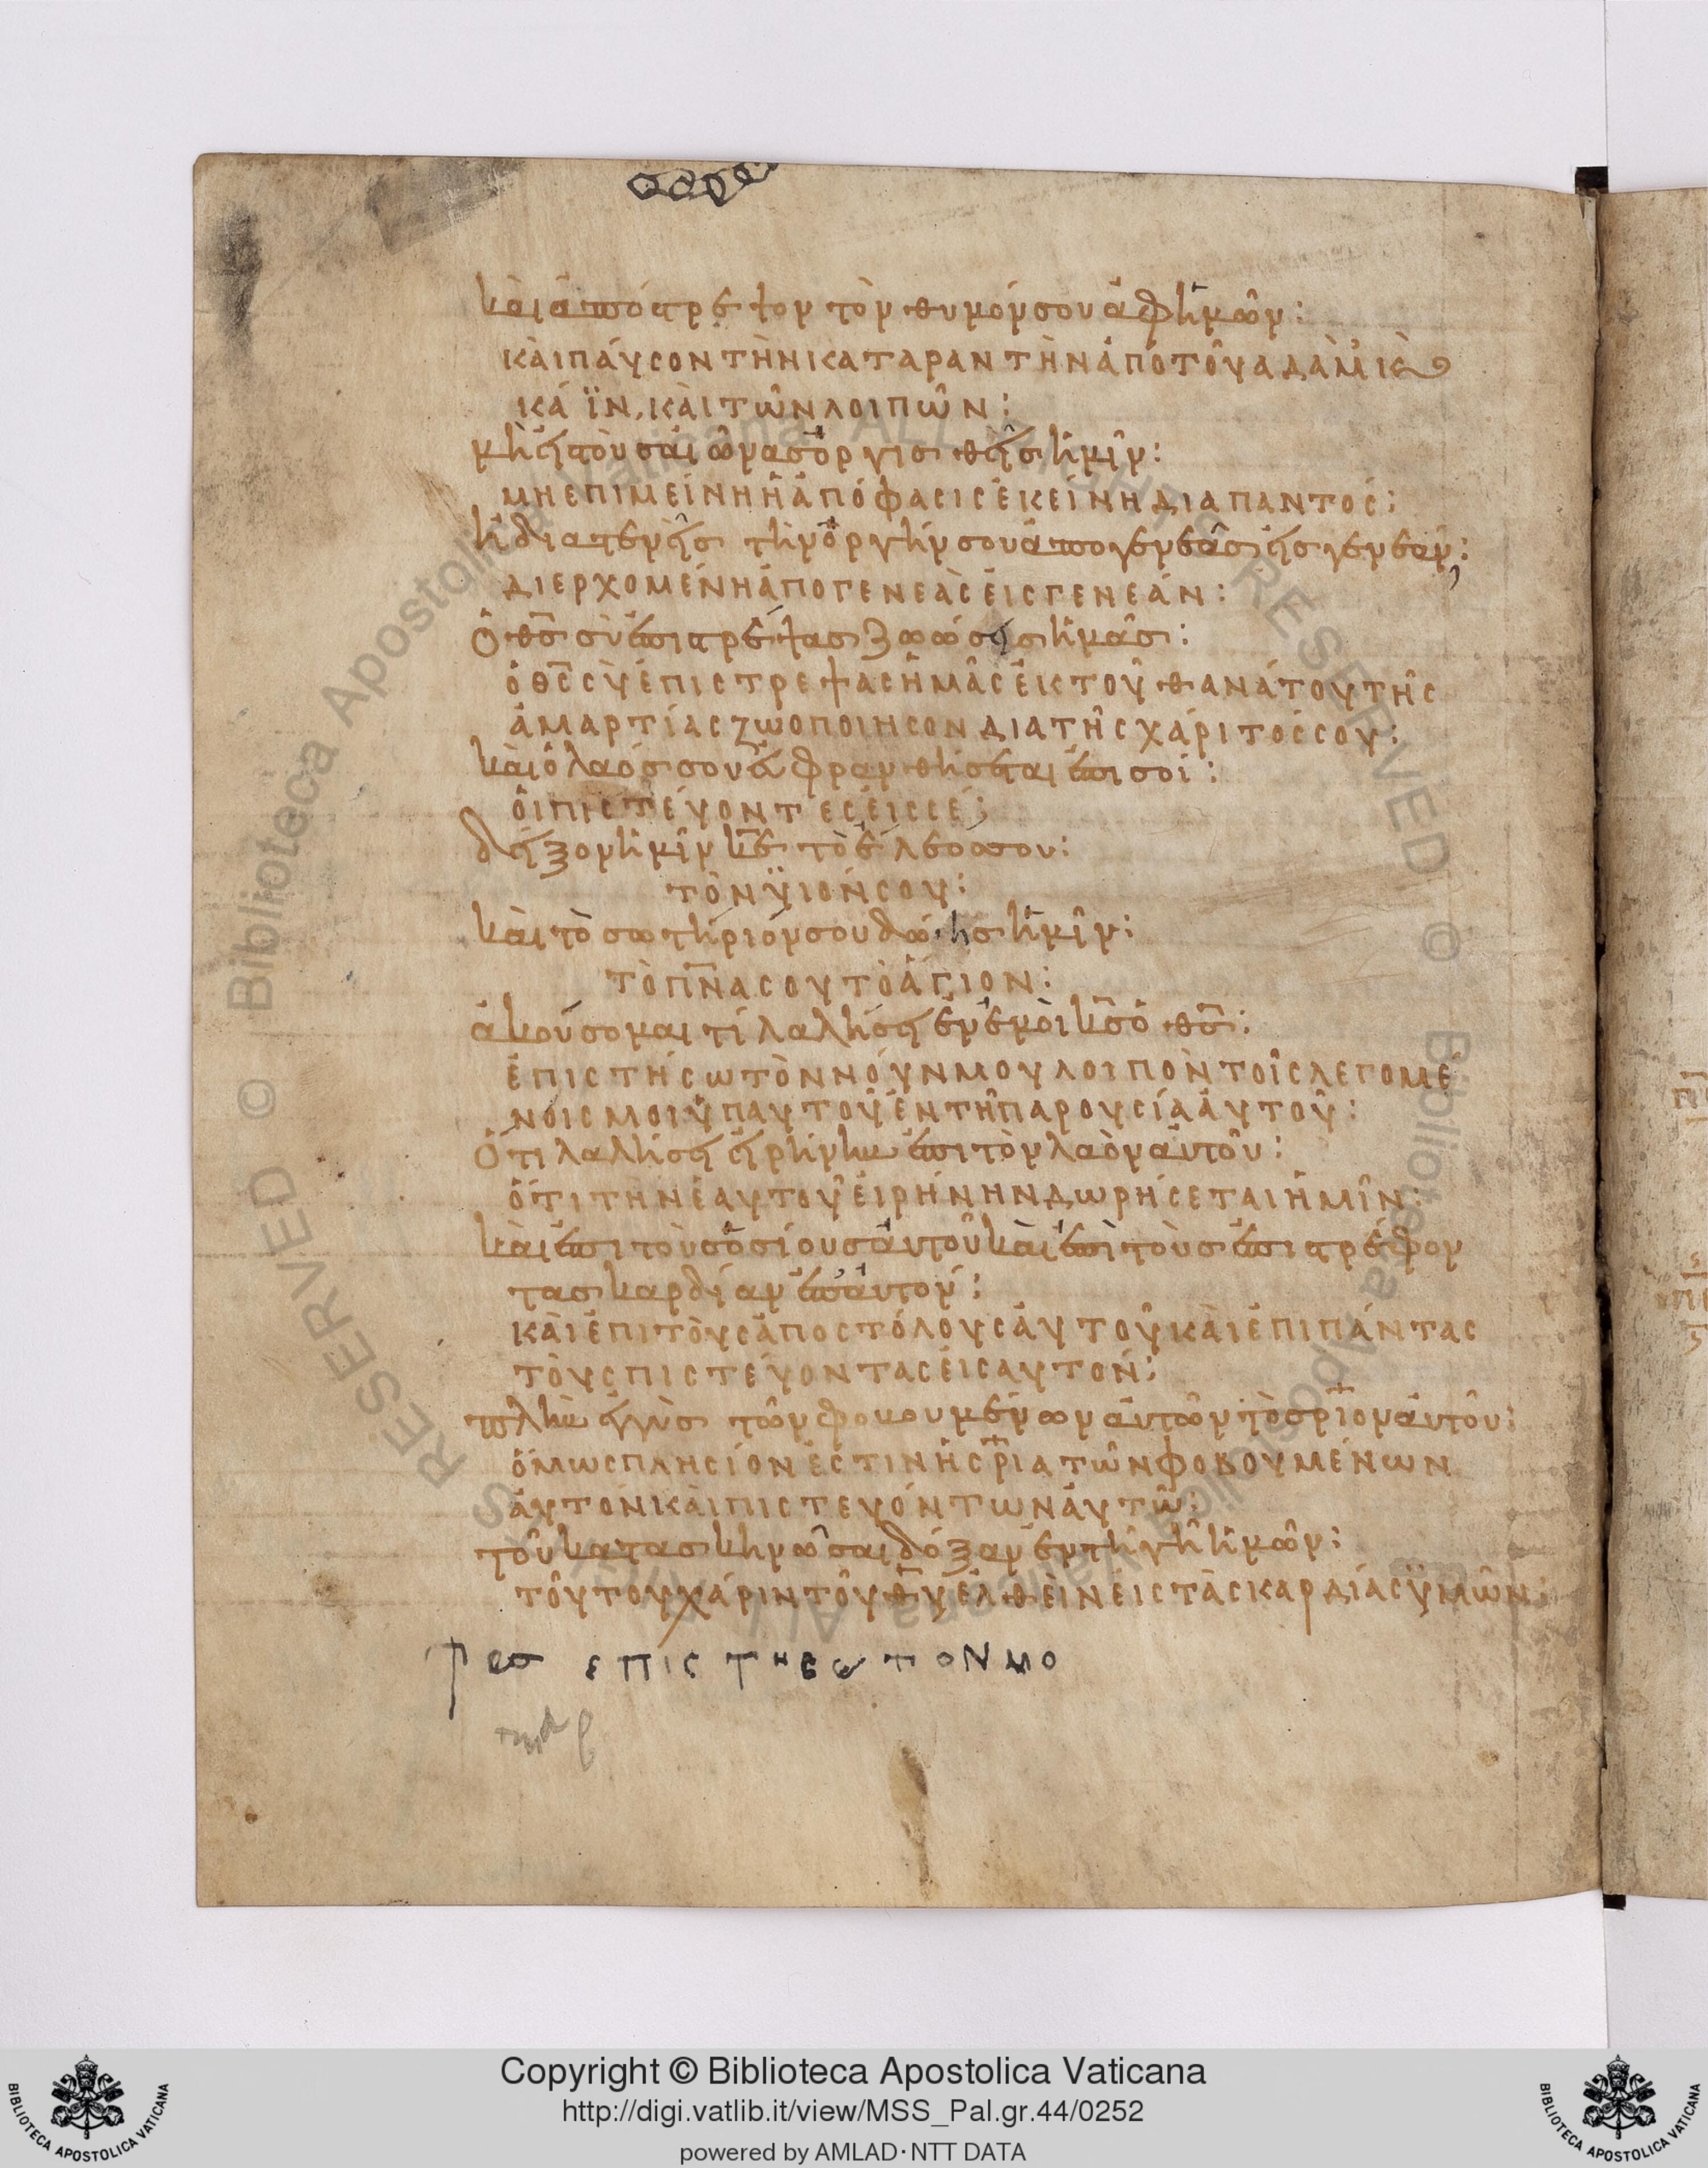 καὶ ἀπόστρεψον τὸν θυμόν σου ἀφ ἡμῶν:
κὰι πάυσον τὴν κατάραν τὴν ἀπὸ τοῦ ἀδὰμ κὰι
κάϊν, κὰι τῶν λοιπῶν:
μὴ εἰς τοὺς αἰῶνας ὀργισθῆς ἡμῖν:
μη επιμείνη ἡ ἀπόφασις ἐκείνη διαπαντός:
ἢ διατενεῖς τὴν ὀργήν σου ἀπο γενεᾶς εἰς γενεάν:
διερχομένη ἀπο γενεὰς ἐις γενεάν:
ὁ θς σὺ ἐπιστρέψας ζωώσεις ἡμᾶς:
ὁ θς σὺ ἐπιστρεψας ἡμᾶς ἐκ τοῦ θανάτου τῆς
ἁμαρτίας ζωοποιησον δια τῆς χάριτός σου:
καὶ ὁ λαός σου εὐφρανθήσεται ἐπι σοί:
ὁι πιστέυοντες ἐις σέ:
δεῖξον ἡμῖν κε τὸ ἔλεος σου:
τὸν ϋιόν σου:
καὶ τὸ σωτήριόν σου δώης ἡμῖν:
τὸ πνα σου τὸ ἅγιον:
ἀκούσομαι τί λαλήσει ἐν ἐμοὶ κς ὁ θς:
ἐπιστήσω τὸν νόυν μου λοιπὸν τοῖς λεγομέ
νοις μοι ὑπ αυτοῦ ἐν τῆ παρουσία ἀυτοῦ:
Ὅτι λαλήσει εἰρήνην ἐπι τὸν λαὸν αὐτοῦ:
ὅτι τὴν ἑαυτοῦ ἐιρήνην δωρήσεται ἡμῖν:
καὶ ἐπι τοὺς ὁσίους αὐτοῦ καὶ ἐπὶ τοὺς ἐπιστρέφον
τας καρδίαν ἐπ αὐτόν:
κὰι ἐπι τὸυς ἀποστόλους ἀυτοῦ κὰι ἐπι πάντας
τὸυς πιστέυοντας ἐις αυτόν:
πλὴν ἐγγὺς τῶν φοβουμένων αὐτῶν τὸ σριον αὐτοῦ:
ὅμως πλησίον ἐστιν ἡ σρια τῶν φοβουμένων
ἀυτόν κὰι πιστευόντων ἀυτῶ:
τοῦ κατασκηνῶσαι δόξαν ἐν τῆ γῆ ἡμῶν:
τόυτου χάριν τοῦ θυ ἐλθεὶν ἐις τὰς καρδίας ϋμῶν:
επιςτηςω τον μο
Copyright © Biblioteca Apostolica Vaticana
http://digi.vatlib.it/view/MSS_Pal.gr.44/0252
powered by AMLAD·NTT DATA
BIBLIOTECA APOSTOLICA VATICANA
BIBLIOTECA APOSTOLICA VATICANA